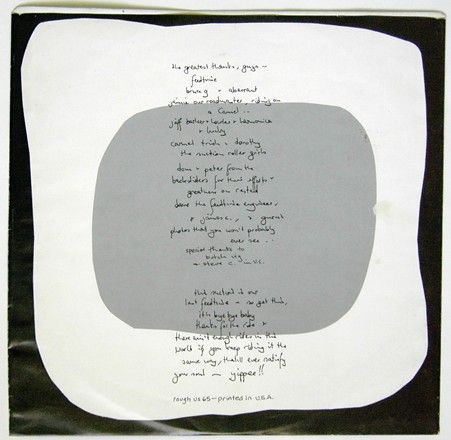 the greatest thanks, guys —
feedtime
bruce g + aberrant
our roadwater, riding on
a camel --
jeff + harmonica
+ lucky
carmel trish + dorothy
the suction roller girls
dom + peter from the
backsliders for their efforts +
greatness on rasted
dave the feedtime engineer,
+ james c., +
photos that you won't probably
ever see --
special thanks to
butch vig
+ steve c. in s.f.
this suction is our
last feedtime — so get this,
it's bye bye baby
thanks for the ride +
there ain't enough rides in this
world if you keep riding it the
same way, that'll ever satisfy
your soul — yippee!!
rough us 65 — printed in U.S.A.